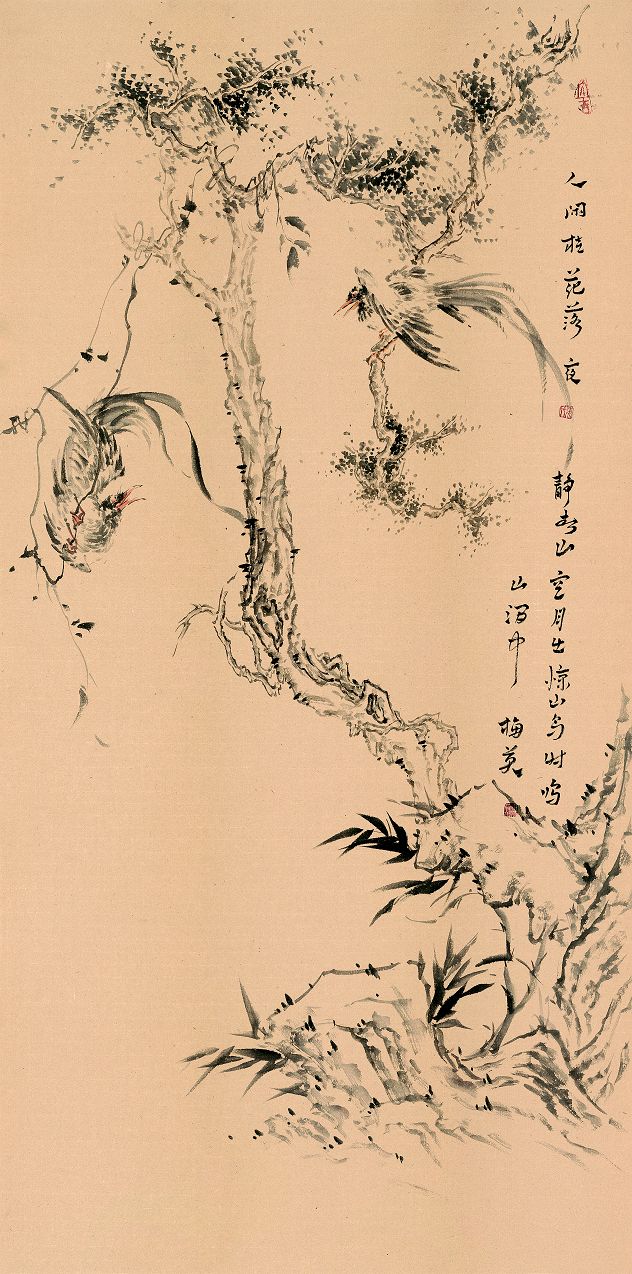 人闲桂花落夜
静春山空月出惊山鸟时鸣
山涧中
梅